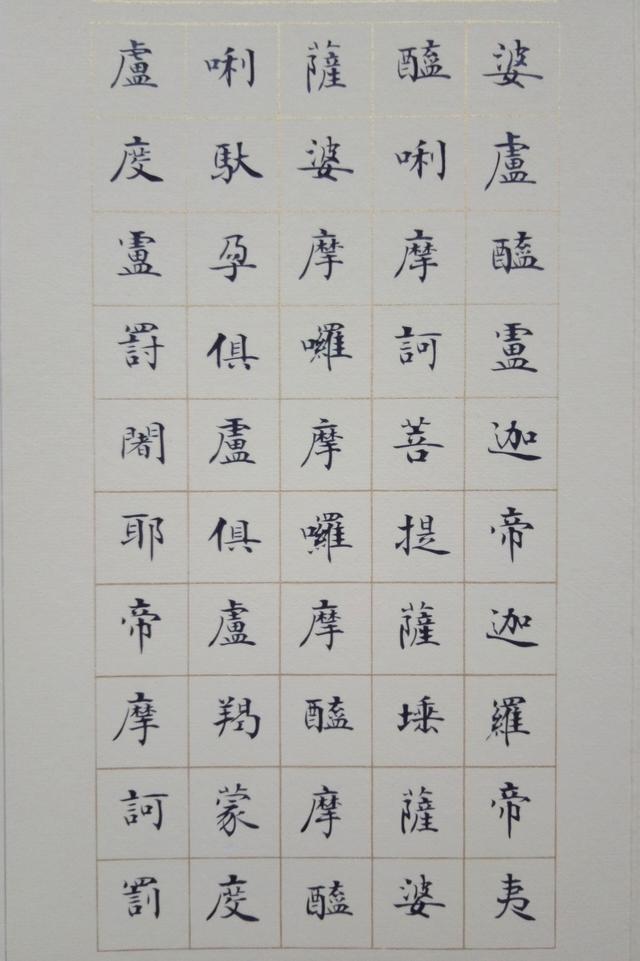 婆盧醯盧迦帝迦羅帝夷
醯唎摩訶菩提薩埵薩婆
薩婆摩囉摩囉摩醯摩醯
唎馱孕俱盧俱盧羯蒙度
盧度盧罰闍耶帝摩訶罰